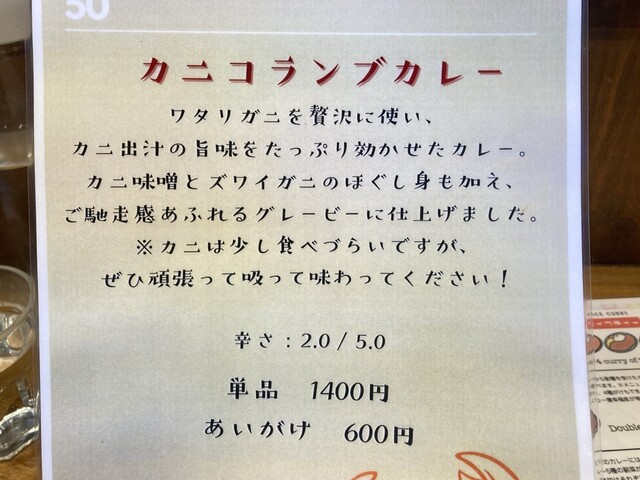 50
カニコランブカレー
ワタリガニを贅沢に使い、
カニ出汁の旨味をたっぷり効かせたカレー。
カニ味噌とズワイガニのほぐし身も加え、
ご馳走感あふれるグレービーに仕上げました。
※カニは少し食べづらいですが、
ぜひ頑張って吸って味わってください！
辛さ：2.0 / 5.0
単品 1400円
あいがけ 600円
Double